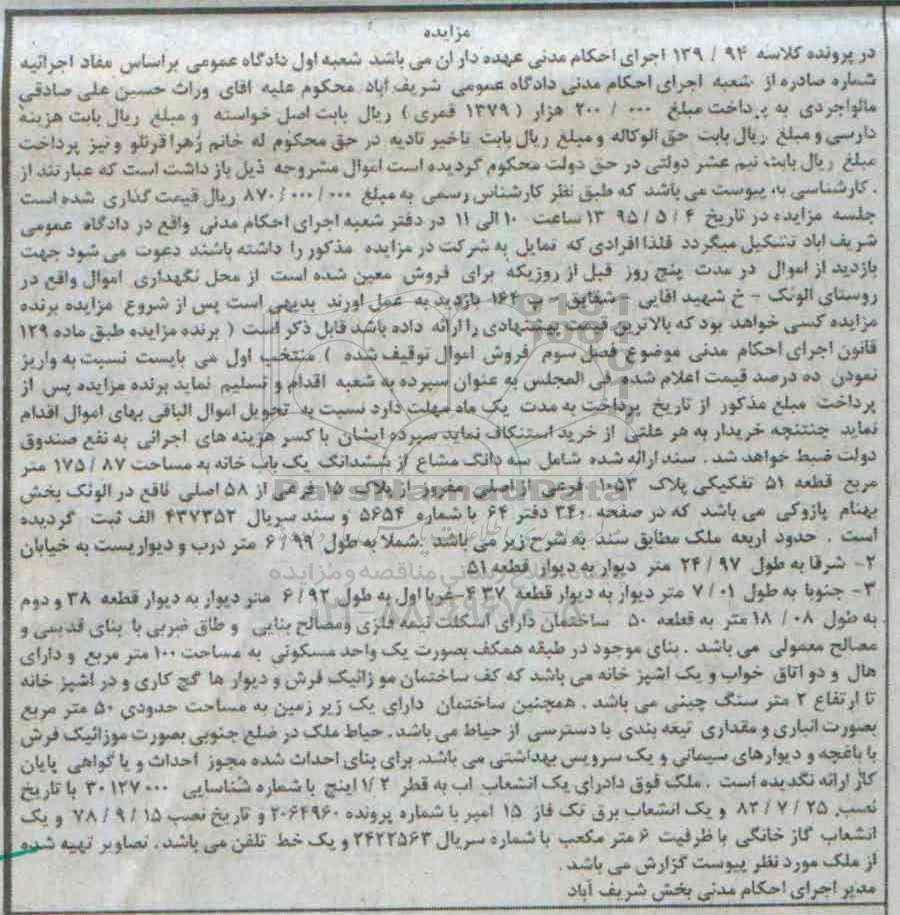 مزایده
در پرونده کلاسه ۹۴ / ۱۳۹ اجرای احکام مدنی عهده داران می باشد شعبه اول دادگاه عمومی براساس مفاد اجرائیه
شماره صادره از شعبه اجرای احکام مدنی دادگاه عمومی شریف آباد محکوم علیه اقای وراث حسین علی صادقی
مالواجردی به پرداخت مبلغ ۰۰۰ / ۲۰۰ هزار ( ۱۳۷۹ قمری ) ریال بابت اصل خواسته و مبلغ ریال بابت هزینه
دارسی و مبلغ ریال بابت حق الوکاله و مبلغ ریال بابت تاخیر تادیه در حق محکوم له خانم زهرا قرنلو و نیز پرداخت
مبلغ ریال بابت نیم عشر دولتی در حق دولت محکوم گردیده است اموال مشروحه ذیل باز داشت است که عبارتند از
. کارشناسی به، پیوست می باشد که طبق نظر کارشناس رسمی به مبلغ ۸۷۰/۰۰۰/۰۰۰ ریال قیمت گذاری شده است
جلسه مزایده در تاریخ ۴ / ۵ / ۹۵ ۱۳ ساعت ۱۰ الی ۱۱ در دفتر شعبه اجرای احکام مدنی واقع در دادگاه عمومی
شریف اباد تشکیل میگردد فلذا افرادی که تمایل به شرکت در مزایده مذکور را داشته باشند دعوت می شود جهت
بازدید از اموال در مدت پنج روز قبل از روزیکه برای فروش معین شده است از محل نگهداری اموال واقع در
روستای الونک - خ شهید اقایی - شقایق - پ ۱۶۴ بازدید به عمل اورند بدیهی است پس از شروع مزایده برنده
مزایده کسی خواهد بود که بالاترین قیمت پیشنهادی را ارائه داده باشد قابل ذکر است ( برنده مزایده طبق ماده ۱۲۹
قانون اجرای احکام مدنی موضوع فصل سوم فروش اموال توقیف شده ) منتخب اول می بایست نسبت به واریز
نمودن ده درصد قیمت اعلام شده فی المجلس به عنوان سپرده به شعبه اقدام و تسلیم نماید برنده مزایده پس از
پرداخت مبلغ مذکور از تاریخ پرداخت به مدت یک ماه مهلت دارد نسبت به تحویل اموال الباقی بهای اموال اقدام
نماید چنتنچه خریدار به هر علتی از خرید استنکاف نماید سپرده ایشان با کسر هزینه های اجرائی به نفع صندوق
دولت ضبط خواهد شد . سند ارائه شده شامل سه دانگ مشاع از ششدانگ یک باب خانه به مساحت ۸۷ / ۱۷۵ متر
مربع قطعه ۵۱ تفکیکی پلاک ۱۰۵۳ فرعی از اصلی مفروز از پلاک ۱۵ فرعی از ۵۸ اصلی قاقع در الونک بخش
بهنام پازوکی می باشد که در صفحه ۳۴۰ دفتر ۶۴ با شماره ۵۶۵۴ و سند سریال ۴۳۷۳۵۲ الف ثبت گردیده
است . حدود اربعه ملک مطابق سند به شرح زیر می باشد .شملا به طول ۹۹ / ۶ متر درب و دیواریست به خیابان
۲- شرقا به طول ۹۷ / ۲۴ متر دیوار به دیوار قطعه ۵۱
۳- جنوبا به طول ۰۱ / ۷ متر دیوار به دیوار قطعه ۳۷ ۴-غربا اول به طول ۹۲ / ۶ متر دیوار به دیوار قطعه ۳۸ و دوم
به طول ۰۸ / ۱۸ متر به قطعه ۵۰ ساختمان دارای اسکلت نیمه فلزی ومصالح بنایی و طاق ضربی با بنای قدیمی و
مصالح معمولی می باشد . بنای موجود در طبقه همکف بصورت یک واحد مسکونی به مساحت ۱۰۰ متر مربع و دارای
هال و دو اتاق خواب و یک اشپز خانه می باشد که کف ساختمان مو زائیک فرش و دیوار ها گچ کاری و در اشپز خانه
تا ارتفاع ۲ متر سنگ چینی می باشد . همچنین ساختمان دارای یک زیر زمین به مساحت حدودی ۵۰ متر مربع
بصورت انباری و مقداری تیغه بندی با دسترسی از حیاط می باشد. حیاط ملک در ضلع جنوبی بصورت موزائیک فرش
با باغچه و دیوارهای سیمانی و یک سرویس بهداشتی می باشد. برای بنای احداث شده مجوز احداث و یا گواهی پایان
کار ارائه نگدیده است . ملک فوق دادرای یک انشعاب اب به قطر ۱/۲ اینچ با شماره شناسایی ۳۰۱۲۷۰۰۰ با تاریخ
نصب ۲۵ / ۷ / ۸۲ و یک انشعاب برق تک فاز ۱۵ امپر با شماره پرونده ۲۰۶۴۹۶۰ و تاریخ نصب ۱۵ / ۹ / ۷۸ و یک
انشعاب گاز خانگی با ظرفیت ۶ متر مکعب با شماره سریال ۲۴۲۲۵۶۳ و یک خط تلفن می باشد . تصاویر تهیه شده
از ملک مورد نظر پیوست گزارش می باشد .
مدیر اجرای احکام مدنی بخش شریف آباد
ParsNamadData